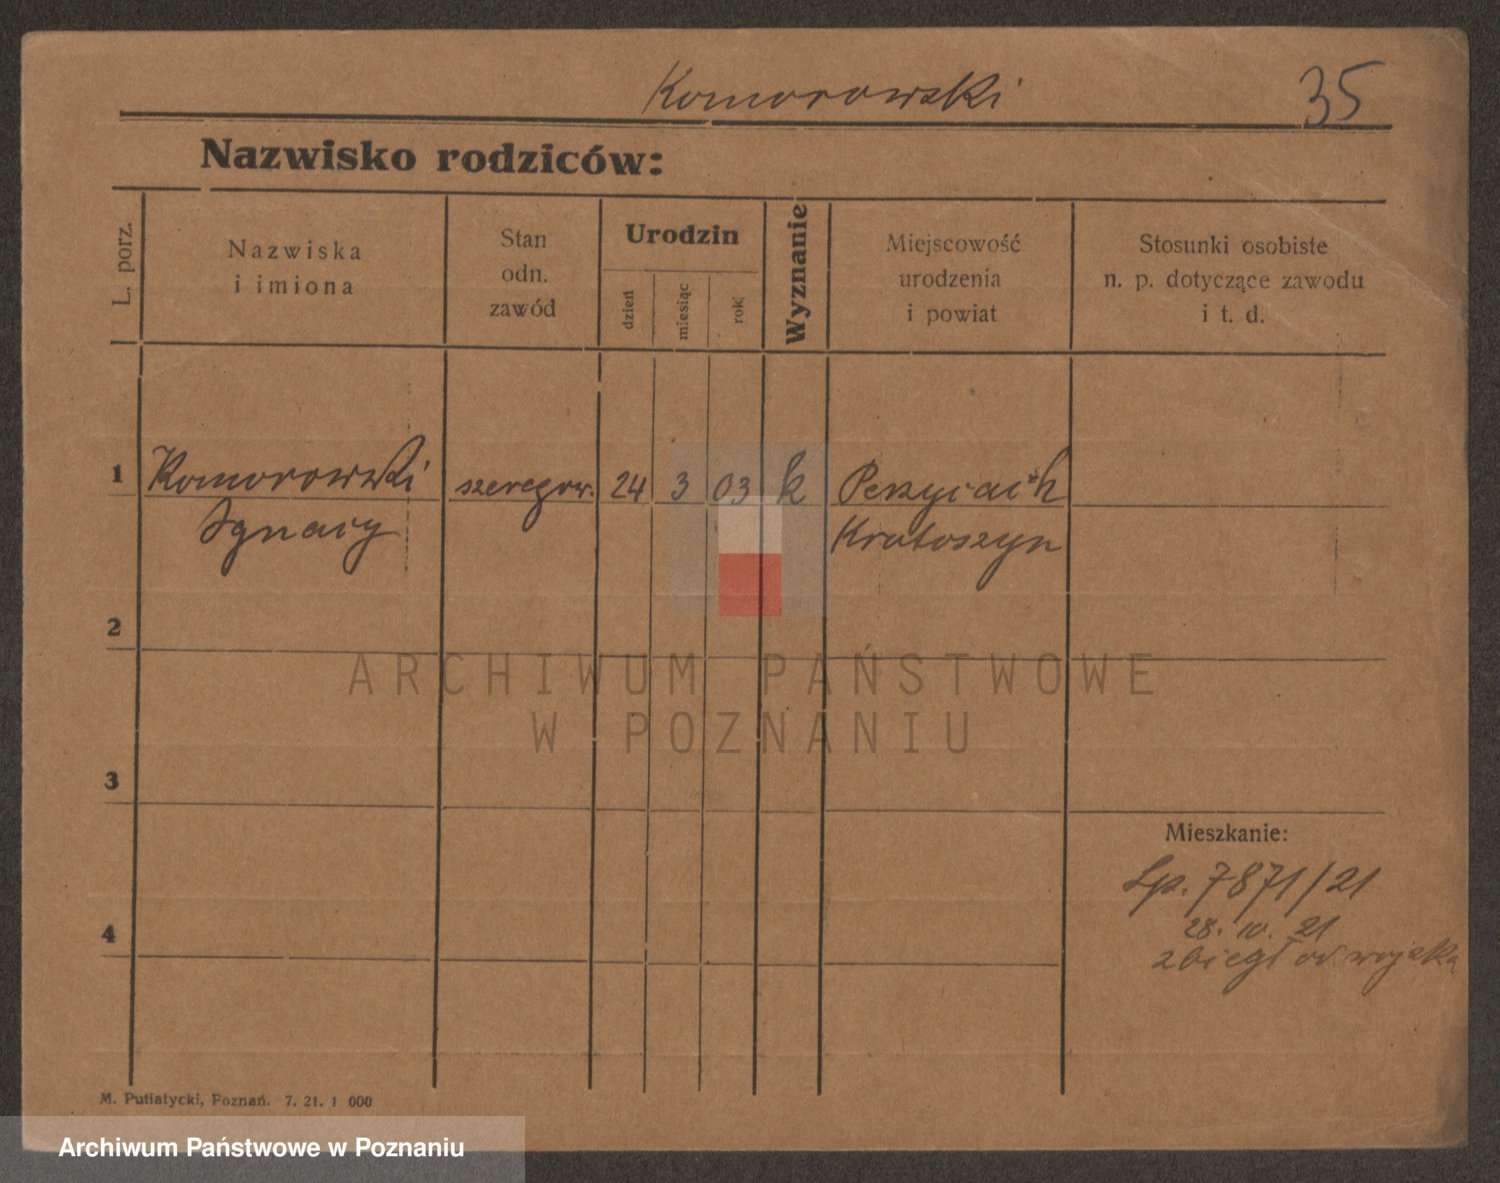 Komorowski
35
Nazwisko rodziców:
L. porz.
Nazwiska
i imiona
Stan
odn.
zawód
Urodzin
dzień
miesiąc
rok
Wyznanie
Miejscowość
urodzenia
i powiat
Stosunki osobiste
n. p. dotyczące zawodu
i t. d.
1 Komorowski szeregow. 24 3 03 k
Ignacy Krotoszyn
2
ARCHIWUM PAŃSTWOWE
W POZNANIU
3
Mieszkanie:
Lp. 7871/21
4
28. 10. 21
zbiegł od wojska
M. Putiatycki, Poznań. 7. 21. 1 000
Archiwum Państwowe w Poznaniu